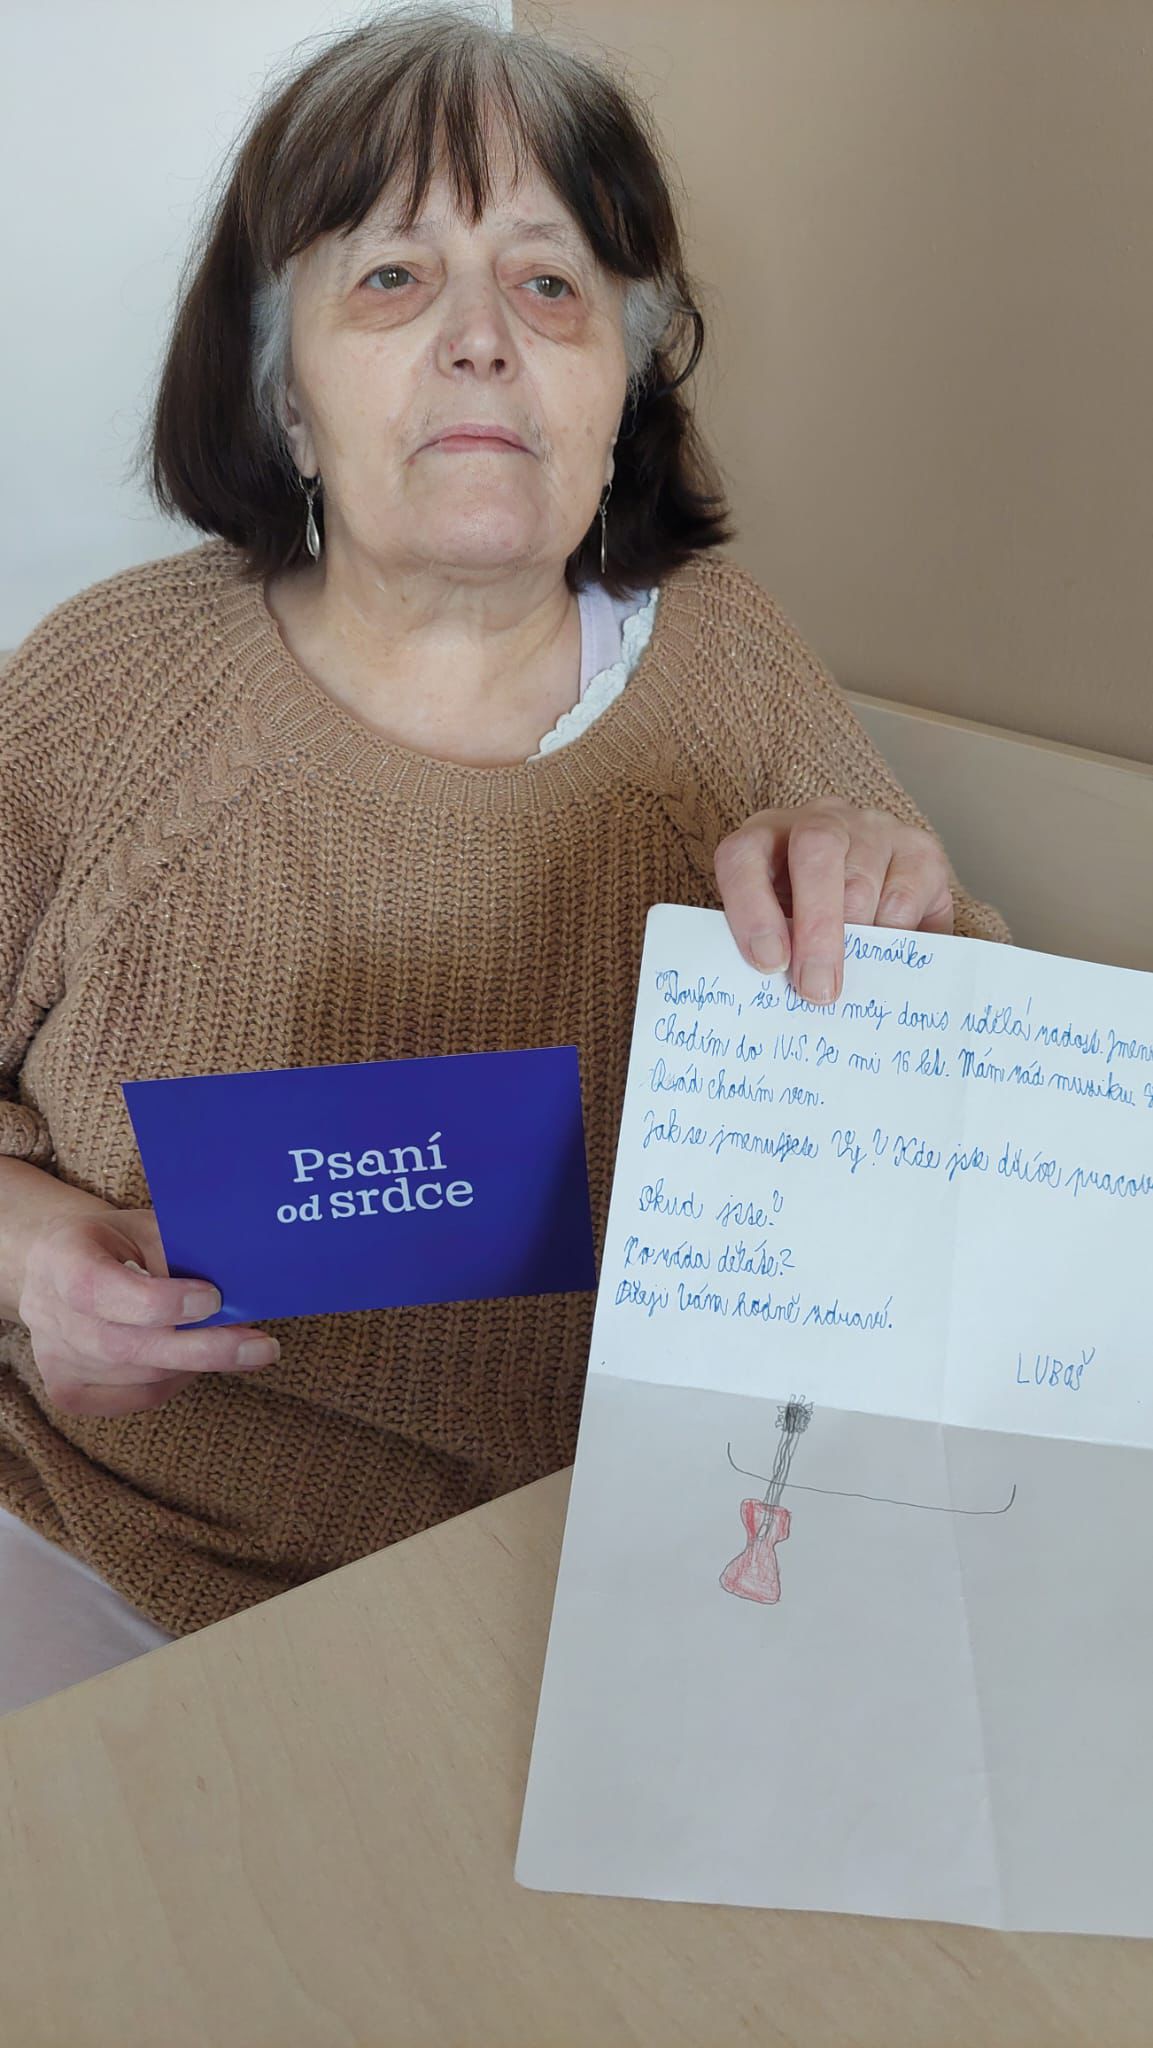 Psaní
od srdce
Doufám, že Vám můj dopis udělá radost. Jmen
chodím do IV.S. Je mi 16 let. Mám rád muziku.
rád chodím ven.
Jak se jmenujese Vy? Kde jste dříve pracov
Okud jste?
Co ráda děláte?
Přeji Vám hodně zdraví.
LUBOŠ